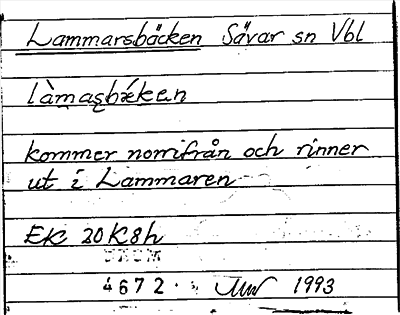 Lammarsbäcken Sävar sn Vbl
kommer norrifrån och rinner
ut i Lammaren
EK 20K8h
4672 1993